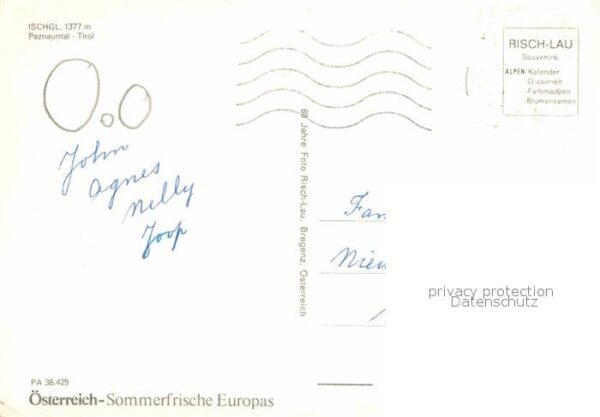 ISCHGL, 1377 m
Paznauntal - Tirol
RISCH-LAU
Souvenirs:
ALPEN-Kalender
-Diaserien
-Farbmappen
-Blumensamen
0.0
John
Agnes
Nelly
Joop
80 Jahre Foto Risch-Lau, Bregenz, Österreich
Fam
privacy protection
Datenschutz
PA 38.429
Österreich-Sommerfrische Europas